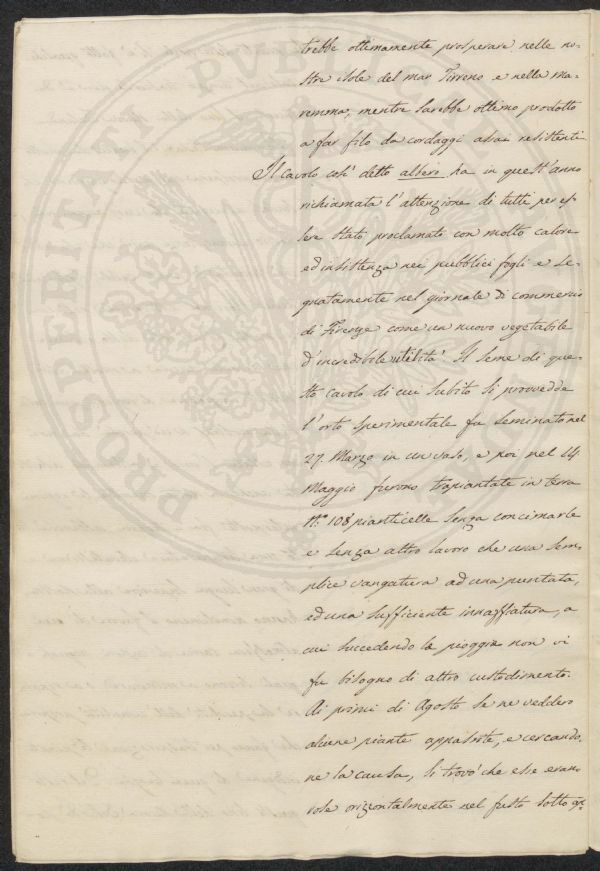 trebbe ottimamente prosperare nelle no-
stre isole del mar Tirreno e nella ma-
remma, mentre sarebbe ottimo prodotto
a far filo da cordaggi assai resistenti
Il cavolo così detto albero ha in quest'anno
richiamata l'attenzione di tutti per es
sere stato proclamato con molto calore
ed insistenza nei pubblici fogli e se-
gnatamente nel giornale di commercio
di Firenze come un nuovo vegetabile
d'incredibile utilità. Il seme di que-
sto cavolo di cui subito si provvedde
l'orto sperimentale fu seminato nel
27. Marzo in un vaso, e poi nel 14
Maggio furono trapiantate in terra
N.° 108 pianticelle senza concimarle
e senza altro lavoro che una sem-
plice vangatura ad una puntata,
ed una sufficiente innaffiatura, a
cui succedendo le pioggie non vi
fu bisogno di altro custodimento.
Ai primi di Agosto se ne veddero
alcune piante appassite, e cercando-
ne la causa, si trovò che esse eran
rose orizontalmente nel fusto sotto
PROSPERITATI PUBLICAE